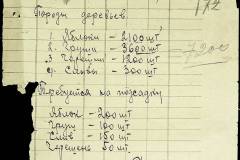 172
Породы деревьев
1. Яблони – 2100 шт
2. Груши – 3600 шт
3. Черешни – 1200 шт
4. Сливы – 300 шт
7200
Требуется на подсадку
Яблон – 200 шт
Груш – 100 шт
Слив – 150 шт
Черешень 50 шт.